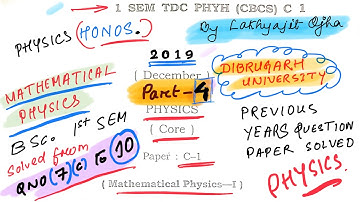 1 SEM TDC PHYH (CBCS) C 1
PHYSICS (HONOS.)
By Lakhyajit Ojha
2019
( December )
DIBRUGARH
UNIVERSITY
MATHEMATICAL
PHYSICS
Part-4
PHYSICS
( Core )
BSC. 1st SEM
Solved from
QNO (7)(c) to 10
Paper : C-1
( Mathematical Physics—I )
PREVIOUS
YEARS QUESTION
PAPER SOLVED
PHYSICS.